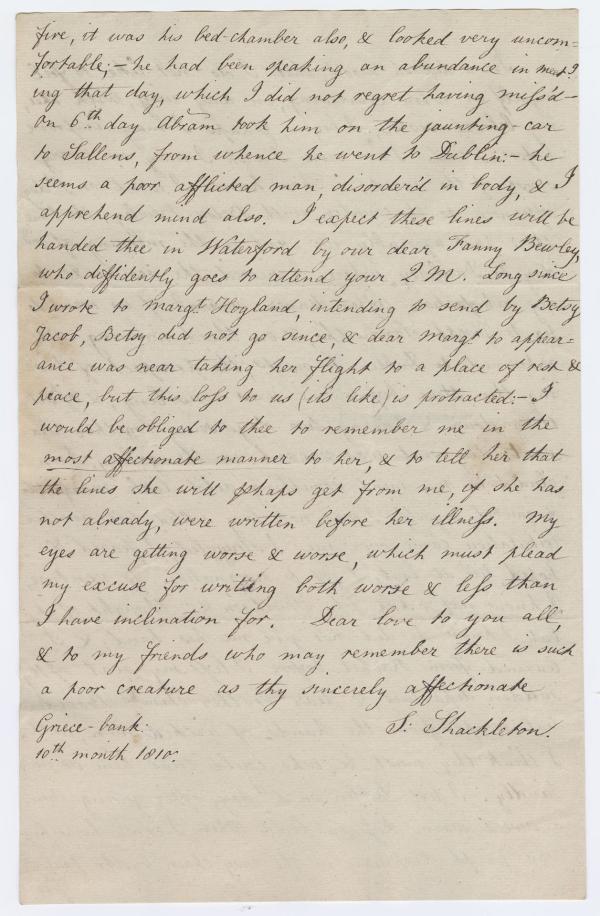 fire, it was his bed-chamber also, & looked very uncom=
fortable; – he had been speaking an abundance in meet
ing that day, which I did not regret having miss'd –
on 6th day Abram took him on the jaunting-car
to Sallens, from whence he went to Dublin: – he
seems a poor afflicted man, disorder'd in body, & I
apprehend mind also. I expect these lines will be
handed thee in Waterford by our dear Fanny Bewley,
who diffidently goes to attend your Q M. Long since
I wrote to Margt. Hoyland, intending to send by Betsy
Jacob, Betsy did not go since, & dear Margt. to appear=
ance was near taking her flight to a place of rest &
peace, but this loss to us (its like) is protracted: – I
would be obliged to thee to remember me in the
most affectionate manner to her, & to tell her that
the lines she will phaps get from me, if she has
not already, were written before her illness. My
eyes are getting worse & worse, which must plead
my excuse for writing both worse & less than
I have inclination for. Dear love to you all,
& to my friends who may remember there is such
a poor creature as thy sincerely affectionate
Griece-bank: S: Shackleton.
10th month 1810: